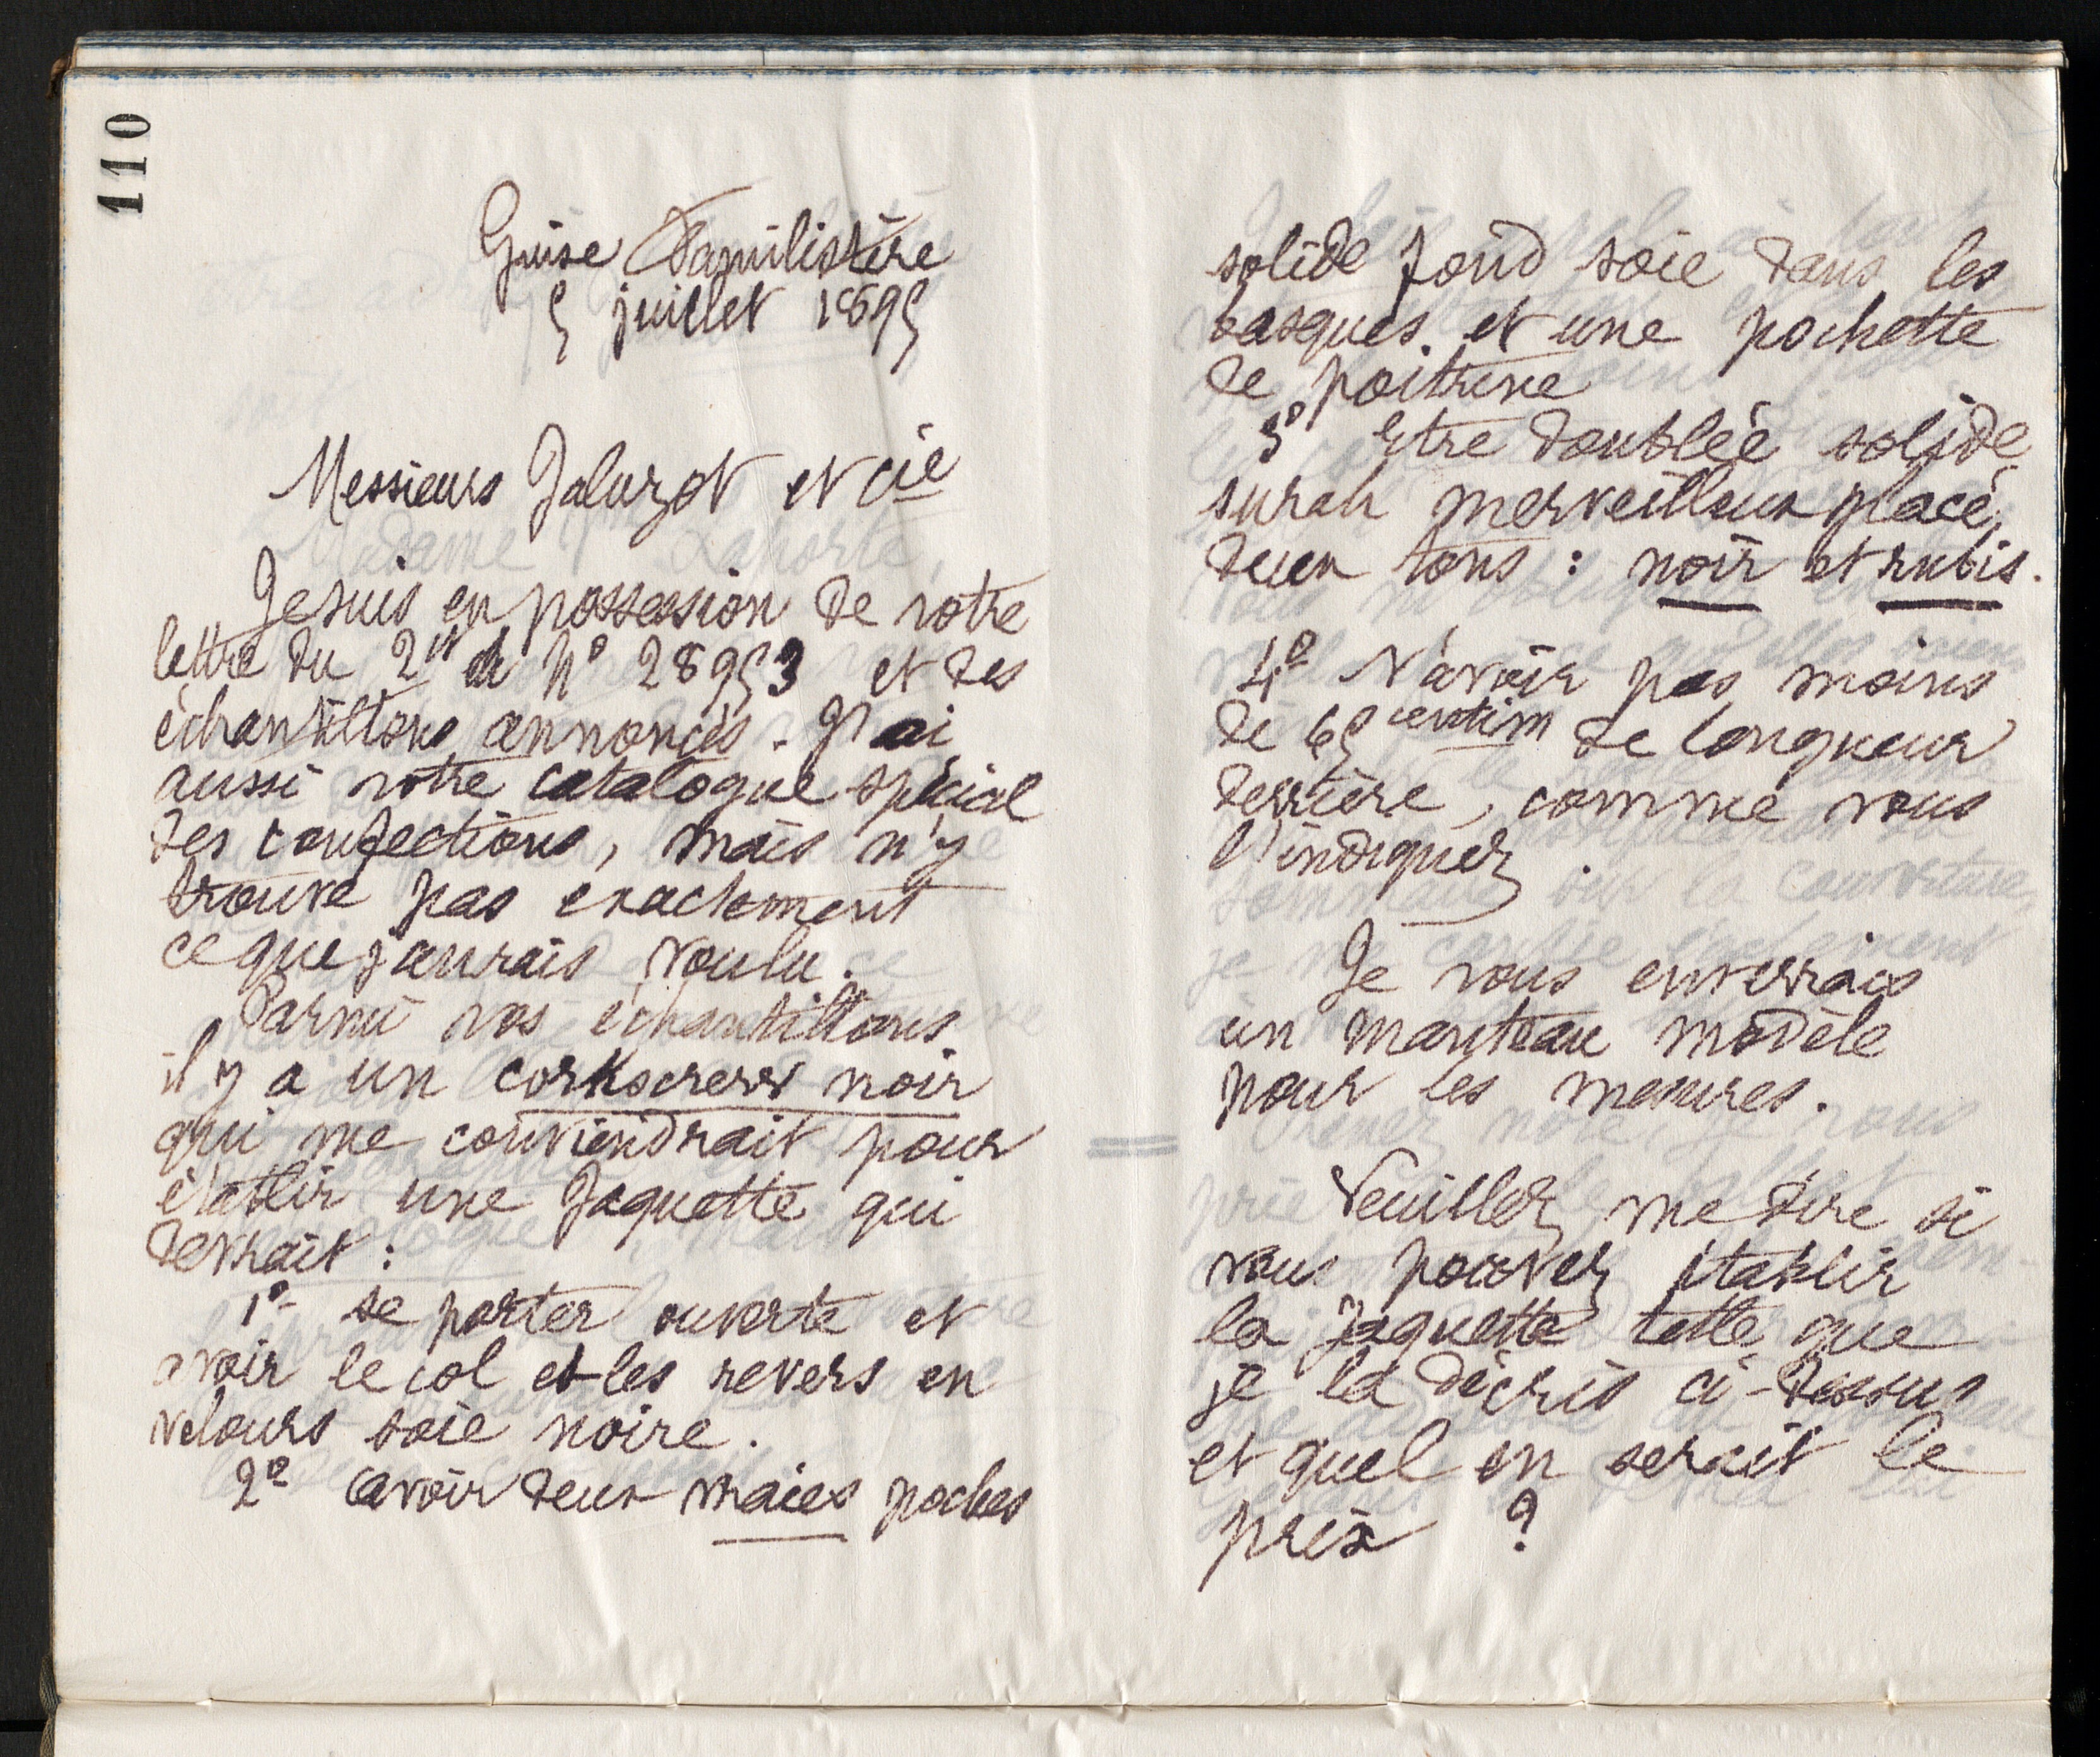 110
Guise Familistère
5 juillet 1895
Messieurs Jaluzot et cie
Je suis en possession de votre
lettre du 2 ct de Nº 28953 et des
échantillons annoncés. J'ai
aussi votre catalogue spécial
des confections, mais n'y
trouve pas exactement
ce que j'aurais voulu.
Parmi vos échantillons
il y a un corkscrew noir
qui me conviendrait pour
établir une Jaquette qui
devrait :
1º se porter ouverte et
avoir le col et les revers en
velours soie noire.
2º avoir deux vraies poches
solide fond soie dans les
basques et une pochette
de poitrine
3º Etre doublée solide
surah merveilleux glacé,
deux tons : noir et rubis.
4º N'avoir pas moins
de 65 centim de longueur
derrière, comme vous
l'indiquez.
Je vous enverrais
un manteau modèle
pour les mesures.
Veuillez me dire si
vous pouvez établir
la Jaquette telle que
je la décris ci-dessus
et quel en serait le
prix ?